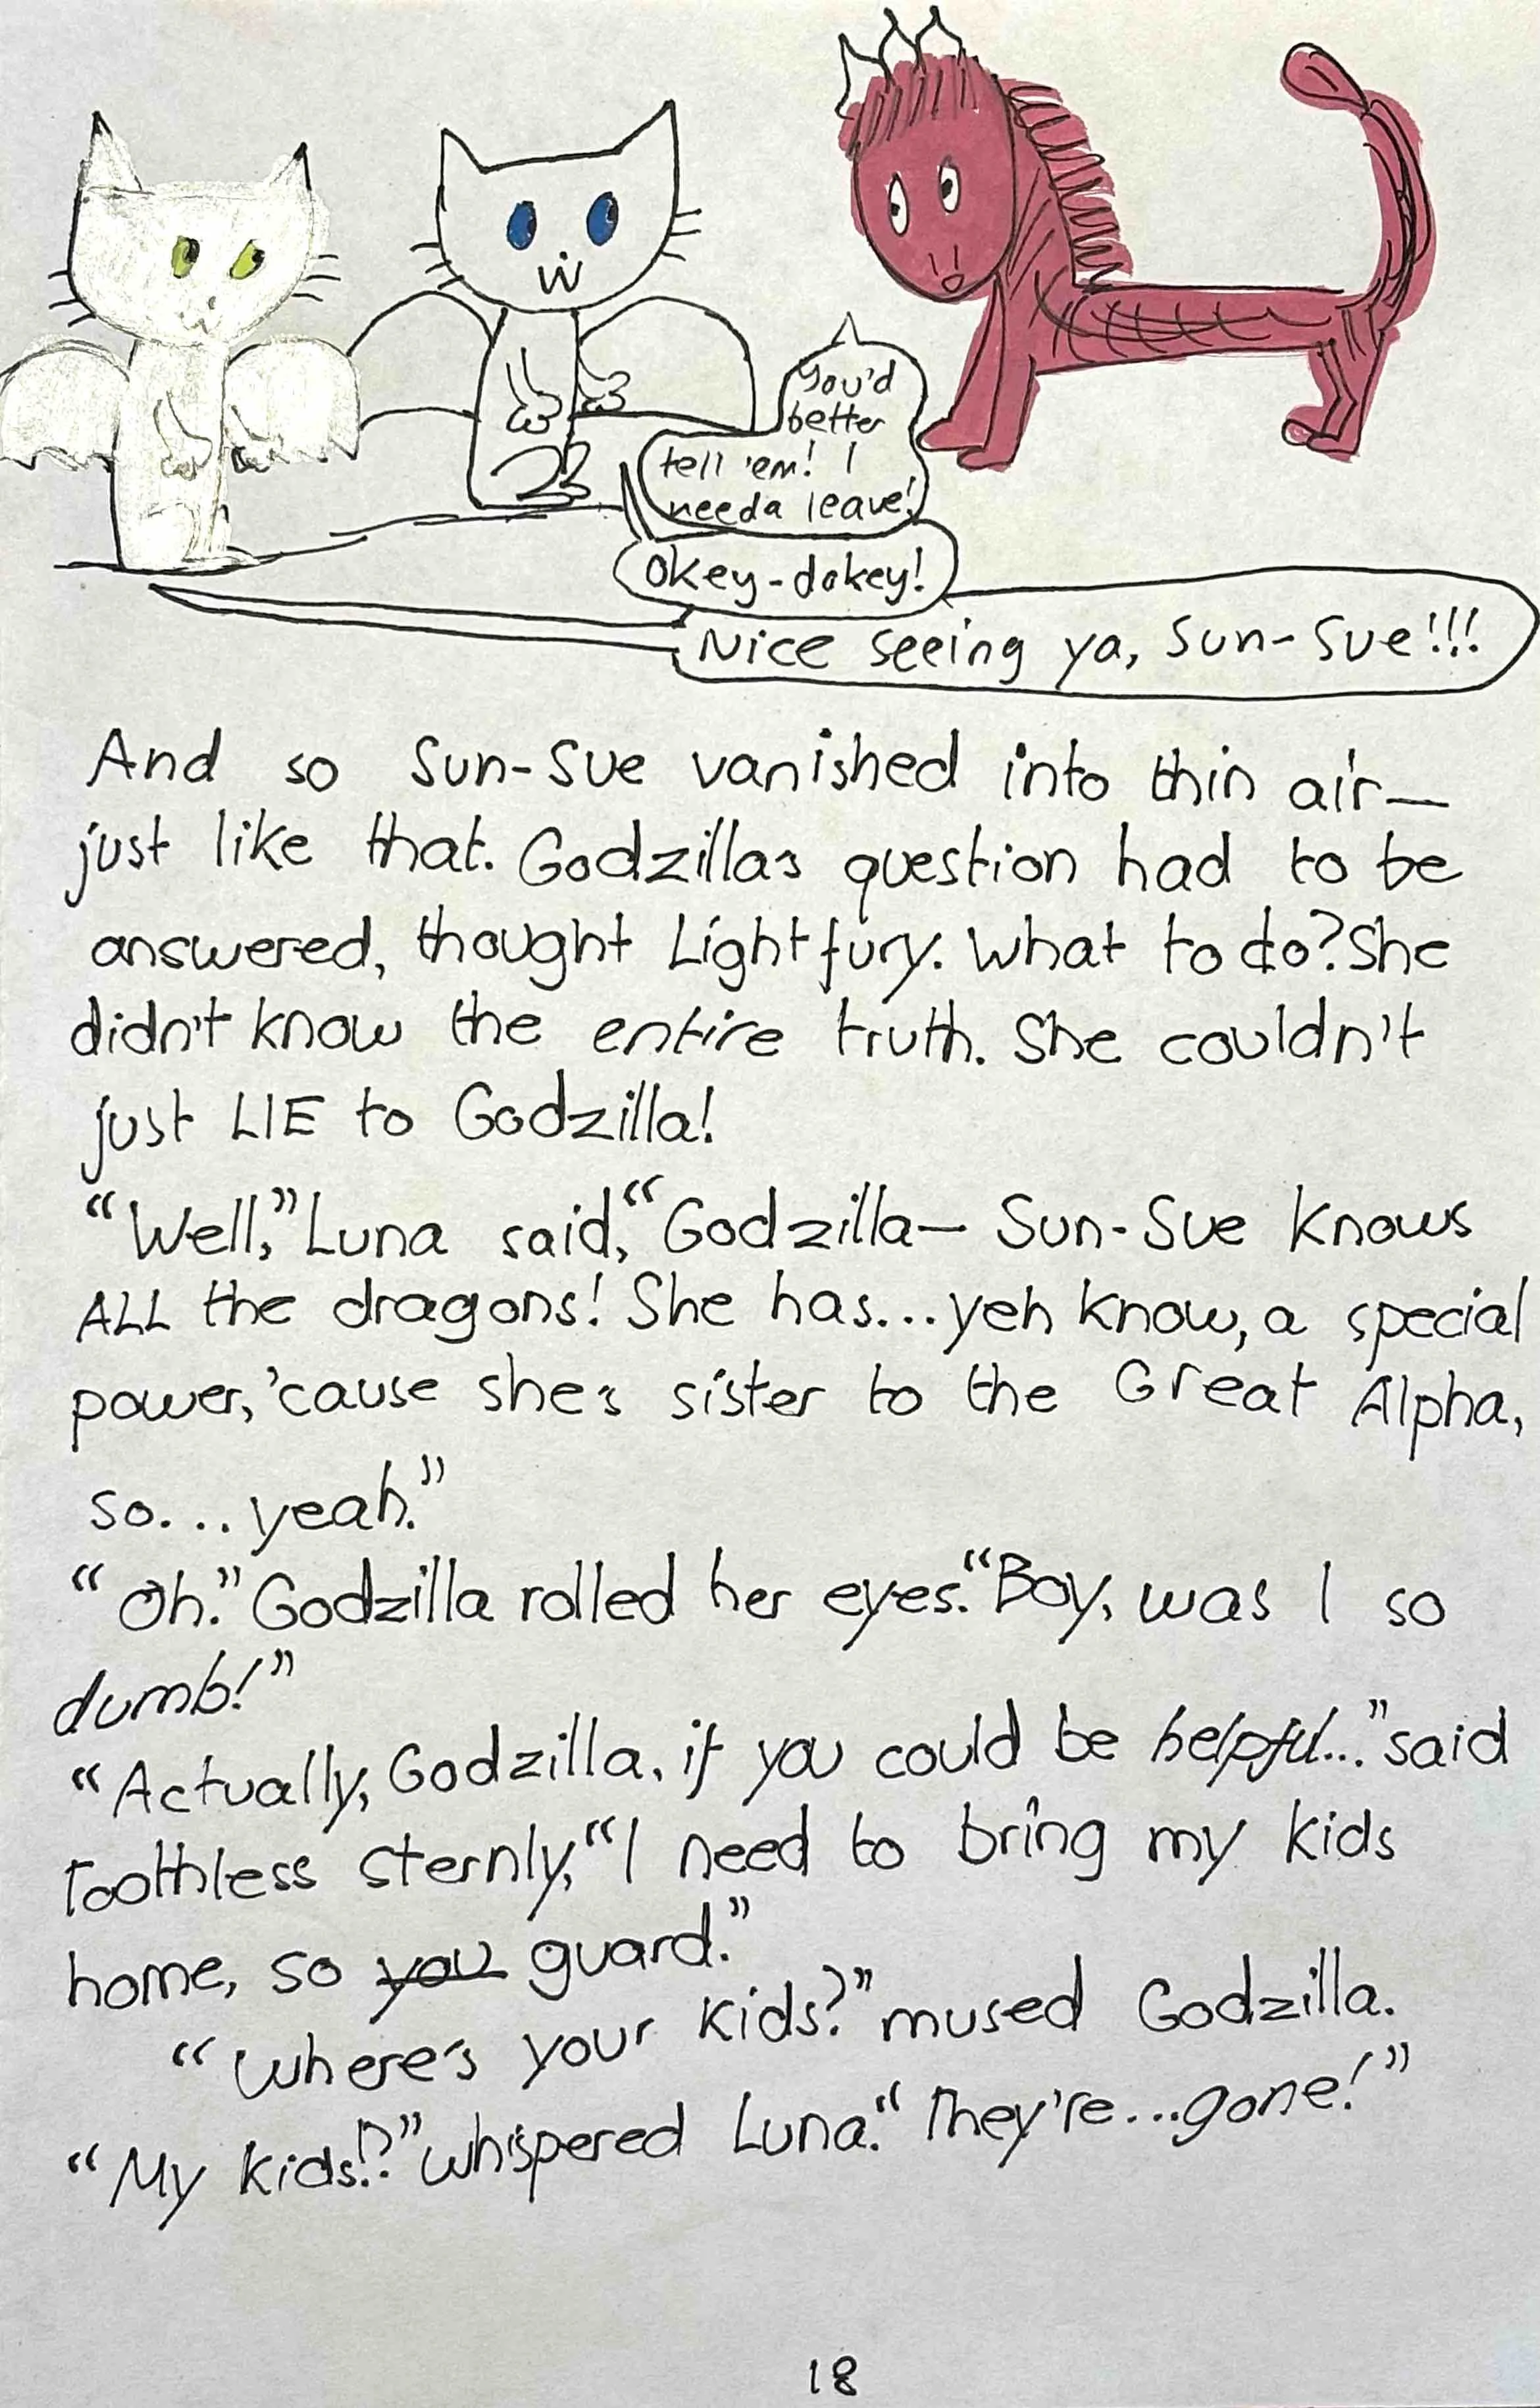 You'd
better
tell 'em! I
needa leave!
Okey-dokey!
Nice seeing ya, Sun-Sue!!!
And so Sun-Sue vanished into thin air—
just like that. Godzilla's question had to be
answered, thought Lightfury. What to do? She
didn't know the entire truth. She couldn't
just LIE to Godzilla!
“Well,” Luna said, “Godzilla— Sun-Sue knows
ALL the dragons! She has...yeh know, a special
power, 'cause she's sister to the Great Alpha,
so... yeah.”
“Oh.” Godzilla rolled her eyes. “Boy, was I so
dumb!”
“Actually, Godzilla, if you could be helpful...” said
Toothless sternly, “I need to bring my kids
home, so you guard.”
“Where's your kids?” mused Godzilla.
“My kids!?” whispered Luna. “They're...gone!”
18